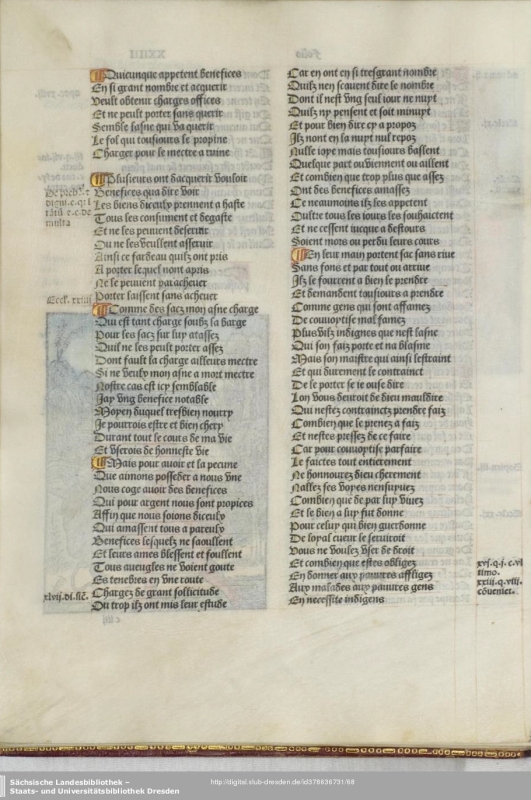 Quicunque appetent benefices
En si grant nombre et acquerir
Veult obtenir charges offices
Et ne peult porter sans querir
Semble lasne qui va querir
Le fol qui tousiours se propine
Charger pour le mectre a ruine
Plusieurs ont dacquerir vouloir
Benefices qua dire voir
Les biens dieculx prennent a haste
Tous les consument et degaste
Et ne les peuvent deseruir
Ou ne les veullent asseruir
Ainsi ce fardeau quilz ont pris
A porter lequel nont apris
Ne le peuuent parachever
Porter laissent sans achever
Eccl. xxiiij
Comme des sacz mon asne charge
Qui est tant charge soubz la barge
Pour les sacz sur luy atassez
Quil ne les peult porter assez
Dont fault la charge ailleurs mectre
Si ne veulx mon asne a mort mectre
Nostre cas est icy semblable
Jay vng benefice notable
Moyen duquel tresbien nourry
Je pourrois estre et bien chery
Durant tout le cours de ma vie
Et vserois de honneste vie
Mais pour auoir et la pecune
Que aimons posseder a nous vne
Nous coge auoir des benefices
Qui pour argent nous sont propices
Affin que nous soions dieculx
Qui amassent tous a par eulx
Benefices lesquelz ne saoullent
Et leurs ames blessent et foullent
Tous aueugles ne voient goute
Es tenebres en vne route
Chargez de grant sollicitude
Ou trop ilz ont mis leur estude
xlvij. di. sic.
Car en ont en si tresgrant nombre
Quilz nen scauent dire le nombre
Dont il nest vng seul iour ne nuyt
Quilz ny pensent et soit minuyt
Et pour bien dire cy a propoz
Ilz nont en la nuyt nul repoz
Nulle ioye mais tousiours bassent
Quelque part ou viennent ou aillent
Et combien que trop plus que assez
Ont des benefices amassez
Ce neaumoins ilz les appetent
Oultre tous les iours les souhaictent
Et ne cessent iucque a destours
Soient mors ou perdu leurs cours
En leur main portent sac sans riue
Sans fons et par tout ou arriue
Ilz le fourrent a bien le prendre
Et demandent tousiours a prendre
Comme gens qui sont affamez
De couuoytise mal famez
Plus vilz indignes que nest lasne
Qui son faiz porte et na blasme
Mais son maistre qui ainsi lestraint
Et qui durement le contrainct
De le porter se ie ouse dire
Lon vous deuroit de dieu mauldire
Qui nestez contrainctz prendre faiz
Combien que le prenez a faiz
Et nestes pressez de ce faire
Car pour couuoytise parfaire
Le faictes tout entierement
Ne honnourez dieu cherement
Nallez ses voyes nensuyuez
Combien que de par luy viuez
Et le bien a luy fut donne
Pour celuy qui bien guerdonne
De loyal cueur le seruiroit
Vous ne voulez vser de droit
Et combien que estes obligez
En donner aux pauures affligez
Aux malades aux pauures gens
En necessite indigens
xvj. q. j. c. vl
timo.
xxiij. q. viij.
Sächsische Landesbibliothek –
Staats- und Universitätsbibliothek Dresden
http://digital.slub-dresden.de/id378636731/68